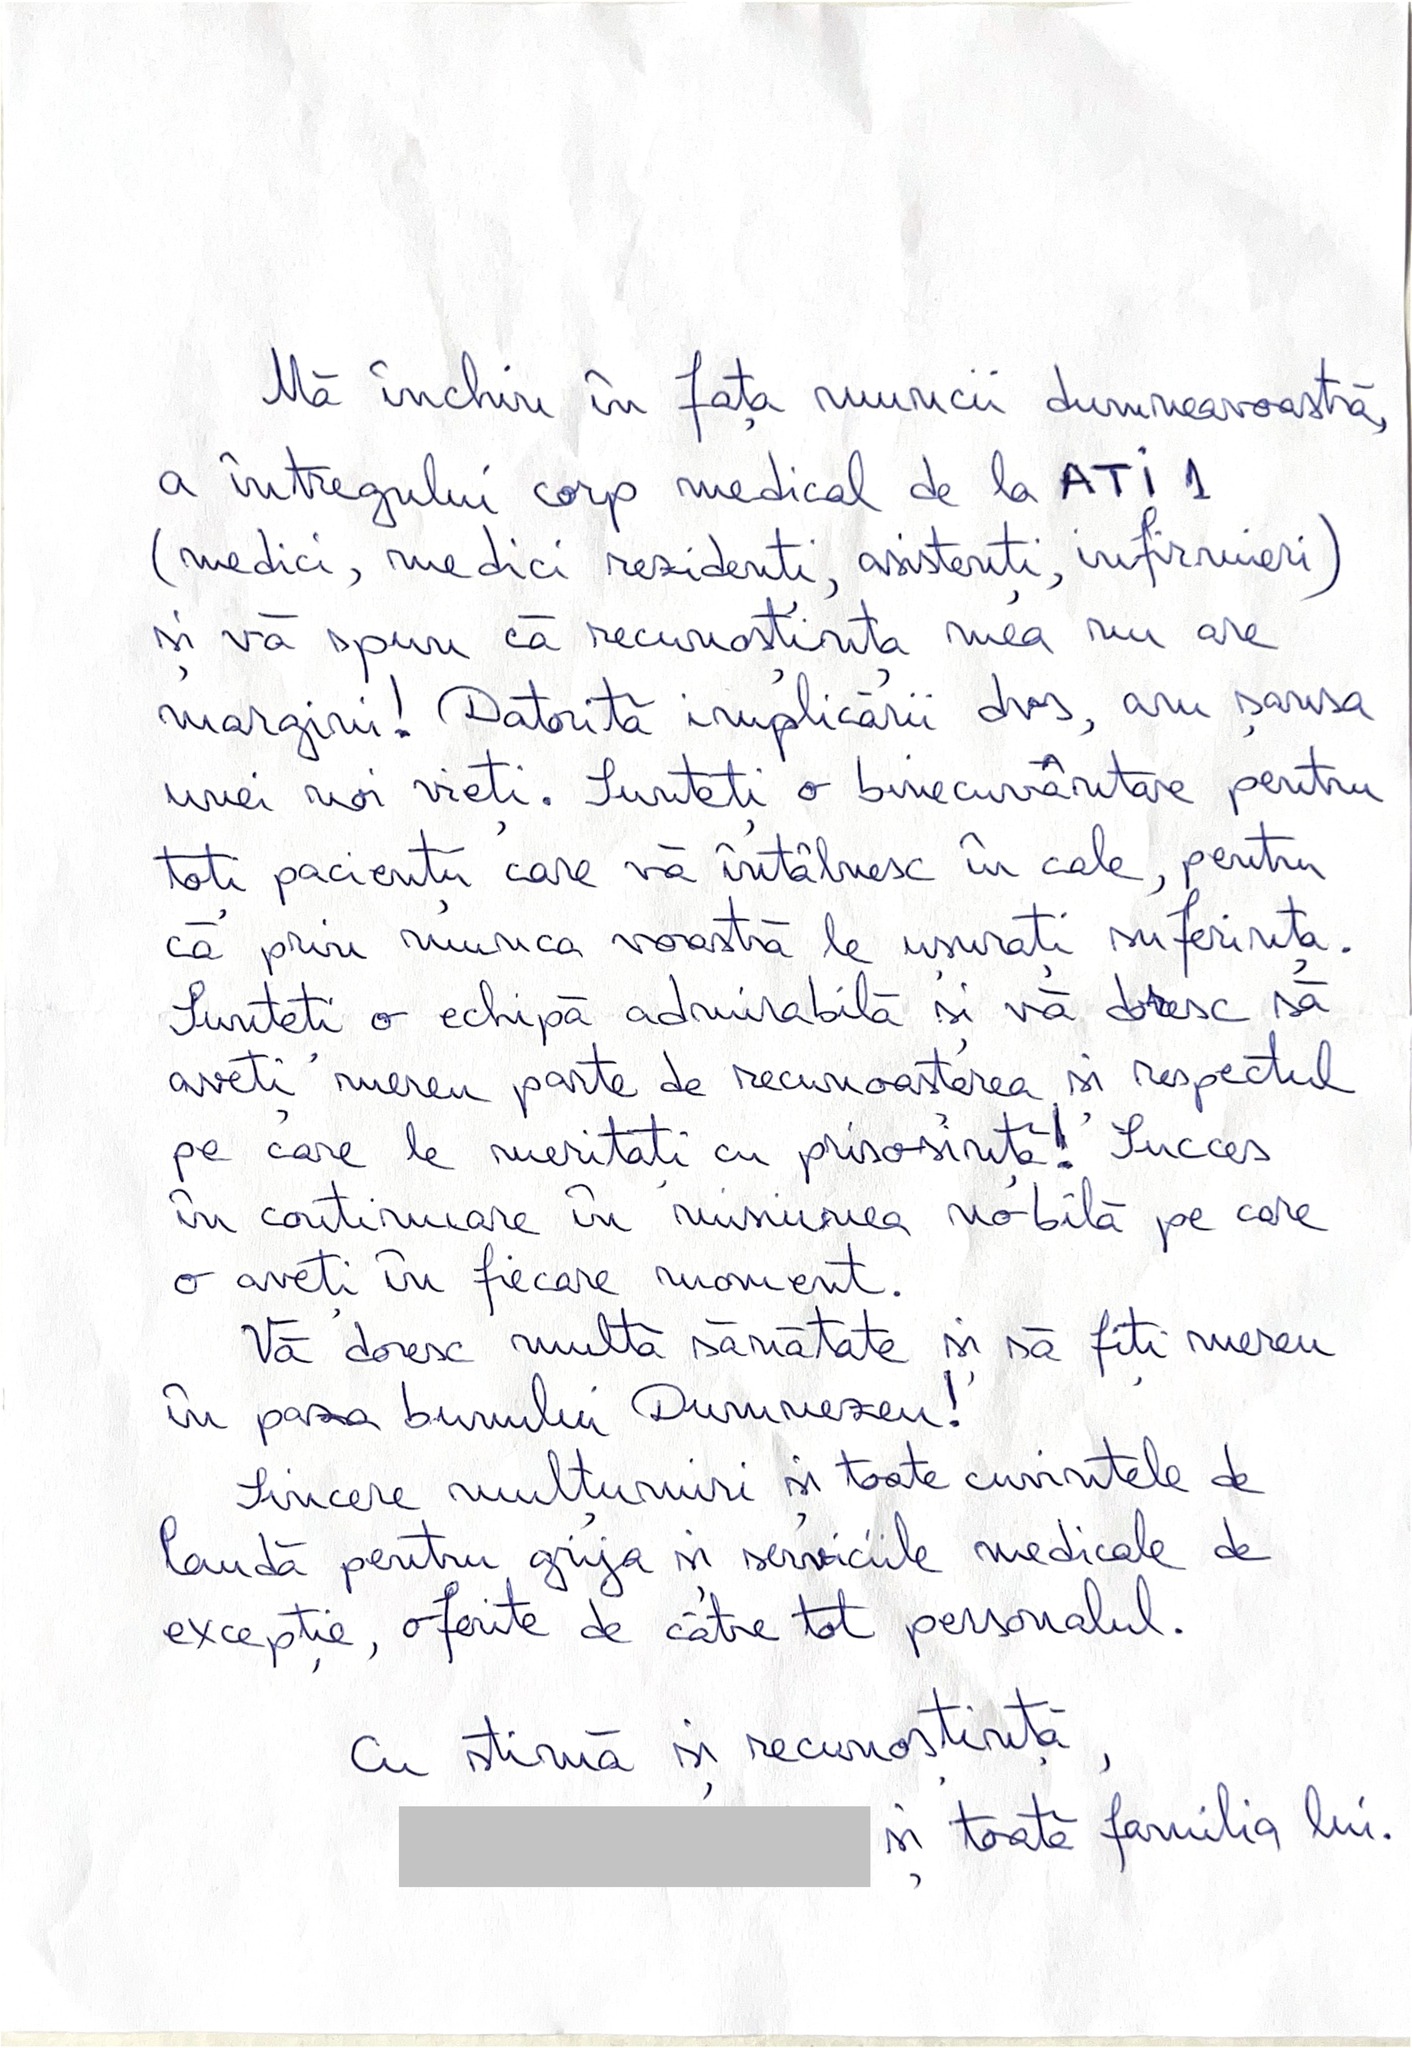 Mă închin în fața muncii dumneavoastră,
a întregului corp medical de la ATI 1
(medici, medici rezidenți, asistenți, infirmieri)
și vă spun că recunoștința mea nu are
margini! Datorită implicării dvs, am șansa
unei noi vieți. Sunteți o binecuvântare pentru
toți pacienții care vă întâlnesc în cale, pentru
că prin munca voastră le ușurați suferința.
Sunteți o echipă admirabilă și vă doresc să
aveți mereu parte de recunoașterea și respectul
pe care le meritați cu prisosință! Succes
în continuare în misiunea nobilă pe care
o aveți în fiecare moment.
Vă doresc multă sănătate și să fiți mereu
în paza bunului Dumnezeu!
Sincere mulțumiri și toate cuvintele de
laudă pentru grija și serviciile medicale de
excepție, oferite de către tot personalul.
Cu stimă și recunoștință,
și toată familia lui.